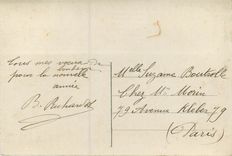 Tous mes voeux de
bonheur
pour la nouvelle
année
B. Richardot
Melle Suzanne
Chez Mr Morin
79 Avenue Kléber 79
(Paris)